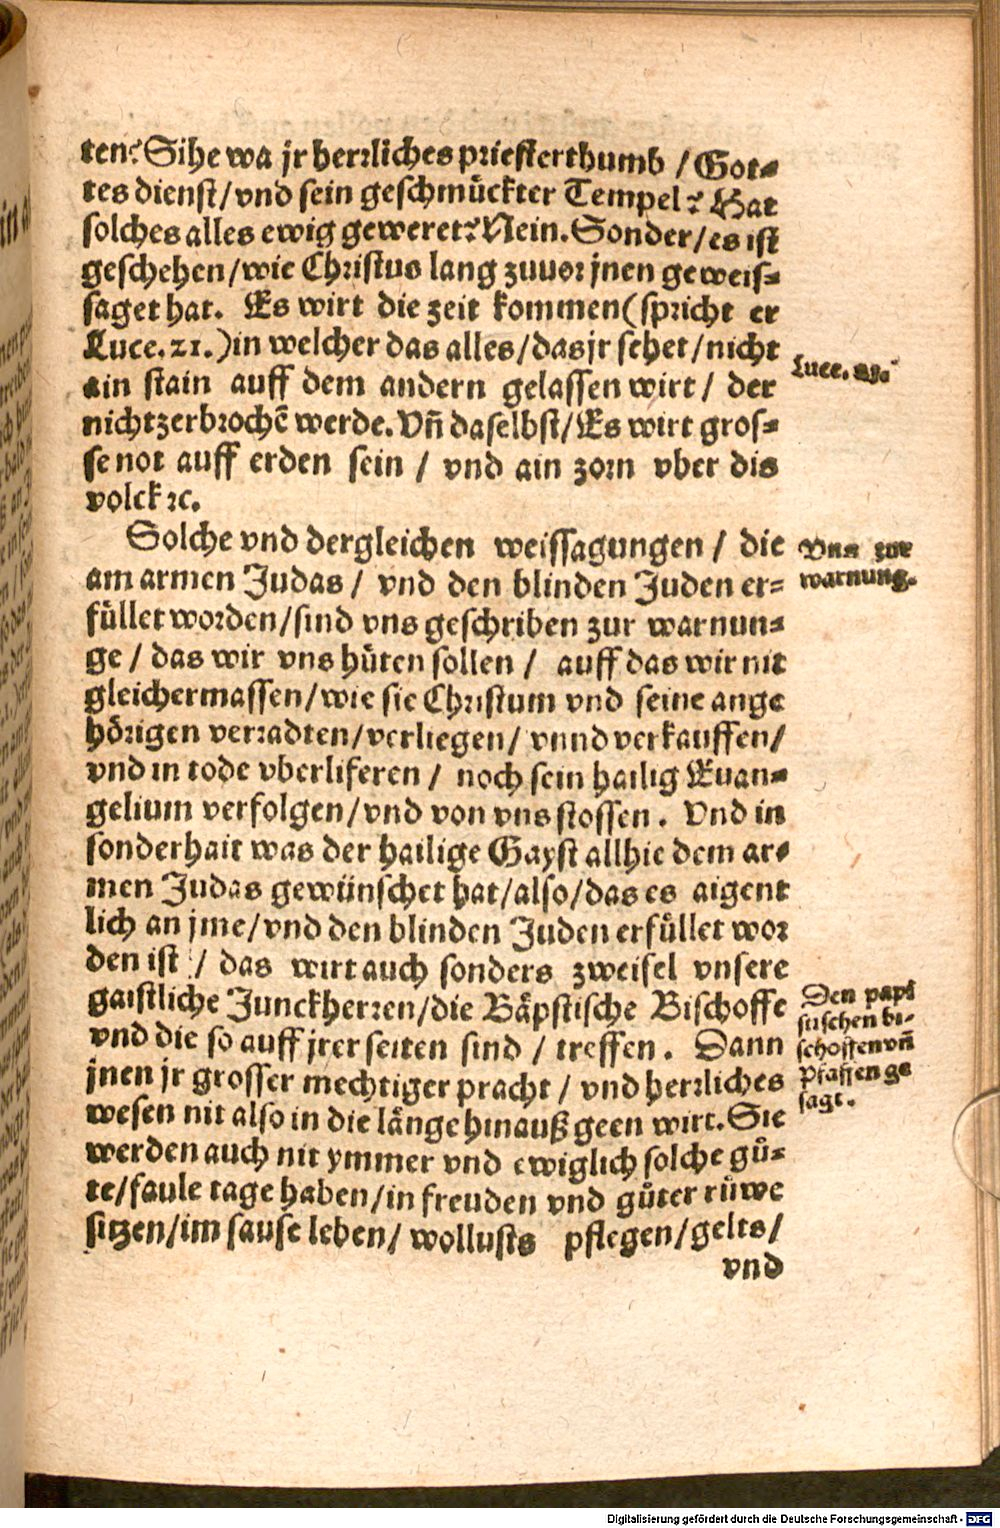 ten? Sihe wa jr herrliches priesterthumb / Got=
tes dienst/vnd sein geschmückter Tempel? Hat
solches alles ewig geweret? Nein. Sonder/es ist
geschehen/wie Christus lang zuuor jnen geweis=
saget hat. Es wirt die zeit kommen (spricht er
Luce. 21.) in welcher das alles/das jr sehet/nicht
ain stain auff dem andern gelassen wirt / der
nicht zerbrochē werde. Vñ daselbst/Es wirt gros=
se not auff erden sein / vnd ain zorn vber dis
volck ꝛc.
Luce. 21.
Solche vnd dergleichen weissagungen / die
am armen Judas / vnd den blinden Juden er=
füllet worden/sind vns geschriben zur warnun=
ge / das wir vns hüten sollen / auff das wir nit
gleichermassen/wie sie Christum vnd seine ange
hörigen verradten/verliegen/ vnnd verkauffen/
vnd in tode vberliferen / noch sein hailig Euan=
gelium verfolgen/vnd von vns stossen. Vnd in
sonderhait was der hailige Gayst allhie dem ar=
men Judas gewünschet hat/also/das es aigent
lich an jme/vnd den blinden Juden erfüllet wor
den ist / das wirt auch sonders zweifel vnsere
gaistliche Junckherren/die Bäpstische Bischoffe
vnd die so auff jrer seiten sind / treffen. Dann
jnen jr grosser mechtiger pracht / vnd herrliches
wesen nit also in die länge hinauß geen wirt. Sie
werden auch nit ymmer vnd ewiglich solche gů=
te/faule tage haben/in freuden vnd gůter rüwe
sitzen/im sause leben/ wollusts pflegen/gelts/
vnd
Vns zur
warnung.
Den päpst
stischen bi=
schoffen vñ
Pfaffen ge
sagt.
Digitalisierung gefördert durch die Deutsche Forschungsgemeinschaft - DFG